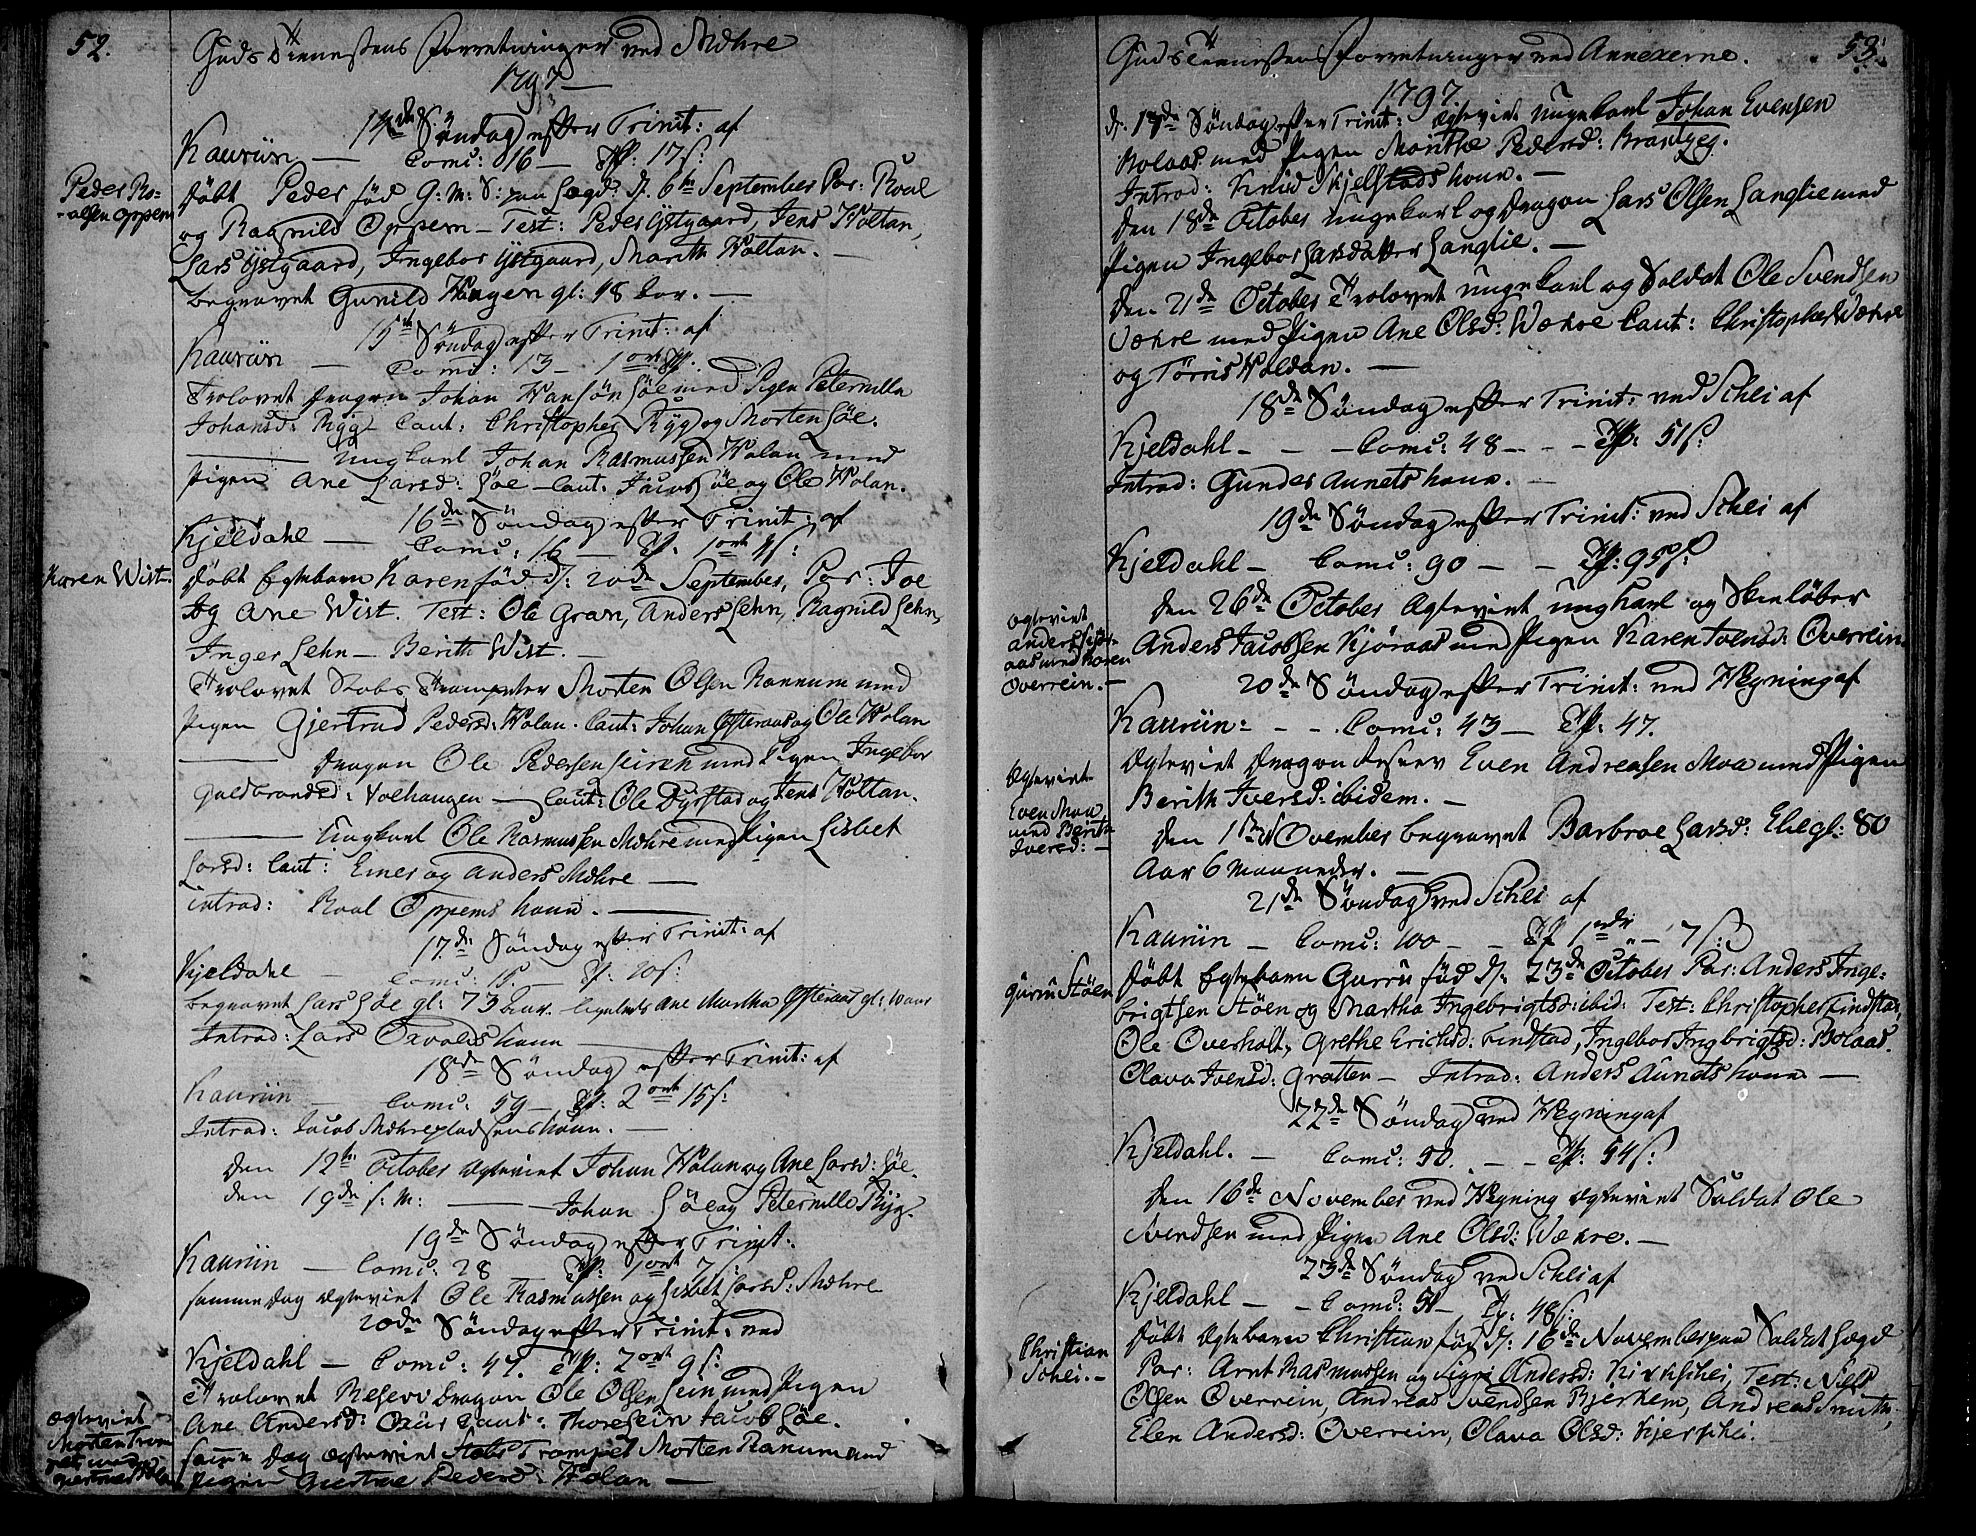 52.
Guds Tienestens Forretninger ved Mæhre
1797
14de Søndag efter Trinit: af
Kauriin — Comu: 16 — Tf: 17 s:
Peder Ro-
-alsen Oppem
døbt Peder fød G: M: S: paa Sogd d. 6te September Par: Roal
og Ragnild Oppem — Test: Peder Ystgaard, Jens Holtan,
Lars Ystgaard, Ingebor Ystgaard, Marith Holtan. —
begravet Gunild Haugen gl: 48 aar. —
15de Søndag efter Trinit: af
Kauriin — Comu: 13 — 1 ort
Trolovet Dragon Johan Hansøn Søe med Pigen Peternille
Johansd: Ryg Caut: Christopher Ryg og Morten Søe.
— Ungkarl Johan Rasmussen Holan med
Pigen Ane Larsd: Søe — Caut: Jacob Søe og Ole Holan.
16de Søndag efter Trinit: af
Kjeldahl — Comu: 16 — Tf. 1 ort s:
Karen Wist.
døbt Egtebarn Karen fød d: 20de September, Par: Joe
og Ane Wist. Test: Ole Gran, Anders Lehn, Ragnild Lehn,
Inger Lehn — Berith Wist. —
Trolovet Stabs Trompeter Morten Olsen Rannum med
Pigen Gjertrud Pedersd: Holan. Caut: Johan Østeraas og Ole Holan
— Dragon Ole Pedersen med Pigen Ingebor
Guldbrandsd: Volhaugen — Caut: Ole Dyrstad og Jens Holtan.
— Ungkarl Ole Rasmussen Mæhre med Pigen Lisbet
Larsd: Caut: Einer og Anders Mæhre —
introd: Roal Oppems kone. —
17de Søndag efter Trinit: af
Kjeldahl — Comu: 18. — Tf: 20 s:
begravet Lars Søe gl: 73 aar. ligeledes Ane Martha Østeraas gl: 10 aar
Introd: Lars kone —
18de Søndag efter Trinit: af
Kauriin — Comu: 59 — Tf: 2 ort 15 s:
Introd: Jacob Mæhrepladsens kone. —
den 12te October Egteviet Johan Holan og Ane Larsd: Søe.
den 19de s: M: — Johan Søe og Peternille Ryg.
19de Søndag efter Trinit:
Kauriin — Comu: 28 Tf: 1 ort 7 s:
samme dag Egteviet Ole Rasmussen og Lisbet Larsd: Mæhre
20de Søndag efter Trinit: ved
Kjeldahl — Comu: 47. Tf: 2 ort 9 s:
Trolovet Reserv Dragon Ole Olsen med Pigen
Ane Andersd: Caut: Jacob Søe.
Egteviet
Morten Trom
samme Dag Egteviet Stabs Trompet Morten Ranum med
Pigen Pedersd: Holan —
53.
Guds Tienestens Forretninger ved Annexerne.
1797.
d. 17de Søndag efter Trinit: Egteviet Ungekarl Johan Evensen
Bolaas med Pigen Marithe Pedersd: Brandseg.
Introd: Knud Skjelstads kone. —
Den 18de October Ungekarl og Dragon Lars Olsen Langlie med
Pigen Ingebor Larsdatter Langlie. —
Den 21de October Trolovet Ungekarl og Soldat Ole Svendsen
Wæhre med Pigen Ane Olsd: Wæhre Caut: Christopher Wæhre
og Tørris Haldan. —
18de Søndag efter Trinit: ved Schei af
Kjeldahl — — — Comu: 48 — — — Tf: 51 s:
Introd: Gunder Aunets kone. —
19de Søndag efter Trinit: ved Schei af
Kjeldahl — Comu: 90 — — Tf: 95 s:
Egteviet
Anders Kjør-
aas med Karen
Overrein. —
Den 26de October Egteviet Ungkarl og Skieløber
Anders Jacobsen Kjøraas med Pigen Karen Iversd: Overrein
20de Søndag efter Trinit: ved Hegning af
Kauriin: — — Comu: 43 — Tf: 47.
Egteviet
Even Moe
med Berith
Iversd: —
Egteviet Dragon Reserv Even Andreasen Moe med Pigen
Berith Iversd: ibidem. —
Den 1ste November begravet Barbroe Larsd: Elie gl: 80
Aar 6 Maaneder. —
21de Søndag ved Schei af
Kauriin — Comu: 100 — — Tf 1 ort — 7 s:
Gurru Støen
døbt Egtebarn Gurru fød d: 23de October Par: Anders Inge-
brigtsen Støen og Martha Ingebrigtsd: ibid: Test: Christopher Findstad,
Ole Overholt, Grethe Erichsd: Findstad, Ingebor Ingbrigtsd: Bolaas.
Olava Iversd: Gratten — Introd: Anders Aunets kone —
22de Søndag ved Hegning af
Kjeldahl. — Comu: 50. — — Tf: 54 s:
Den 16de November ved Hegning Egteviet Soldat Ole
Svendsen med Pigen Ane Olsd: Wæhre. —
23de Søndag ved Schei af
Kjeldahl — — Comu: 51 — Tf: 48 s:
Christian
Schei. —
døbt Egtebarn Christian fød d: 16de November paa Soldat Sogd
Par: Arnt Rasmussen og Sigri Andersd: Test: Niels
Olsen Overrein, Andreas Svendsen Bjerkem, Andreas Smith,
Elen Andersd: Overrein, Olava Olsd: Kjerschei.